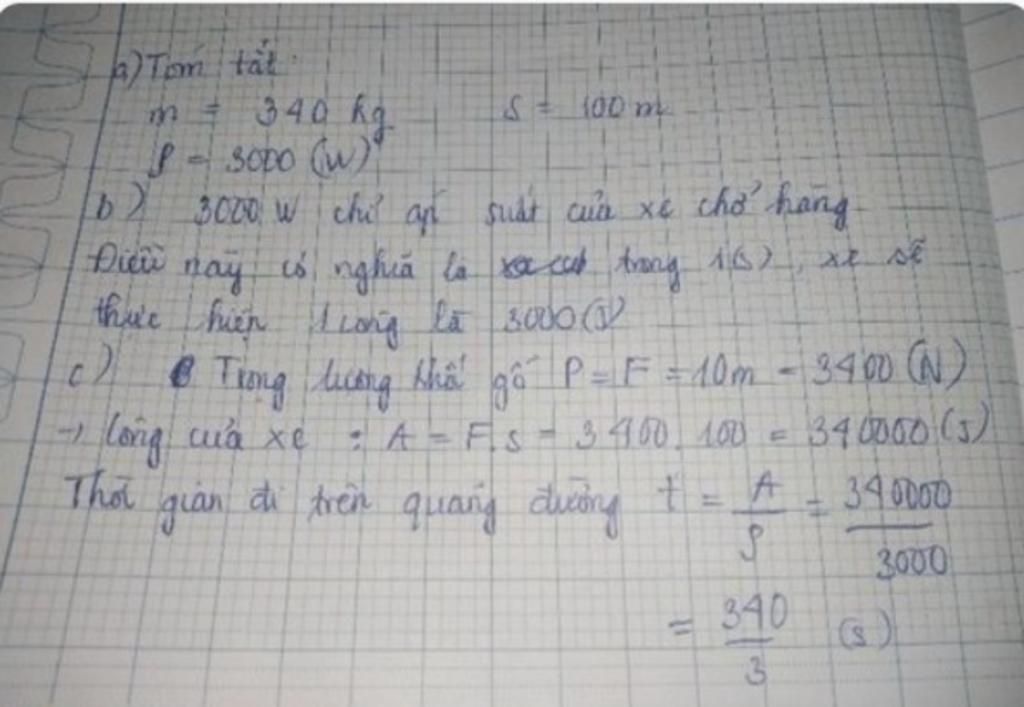 a) Tóm tắt
m = 340 kg s = 100 m
P = 3000 (W)
b) 3000 W chỉ suất của xe chở hàng
Điều này có nghĩa là trong 1(s), xe sẽ
thực hiện 1 công là 3000 (J)
c) Trọng lượng khố gỗ P = F = 10m = 3400 (N)
→ Công của xe : A = F.s = 3400.100 = 340000 (J)
Thời gian đi trên quãng đường t = A/P = 340000/3000
= 340/3 (s)